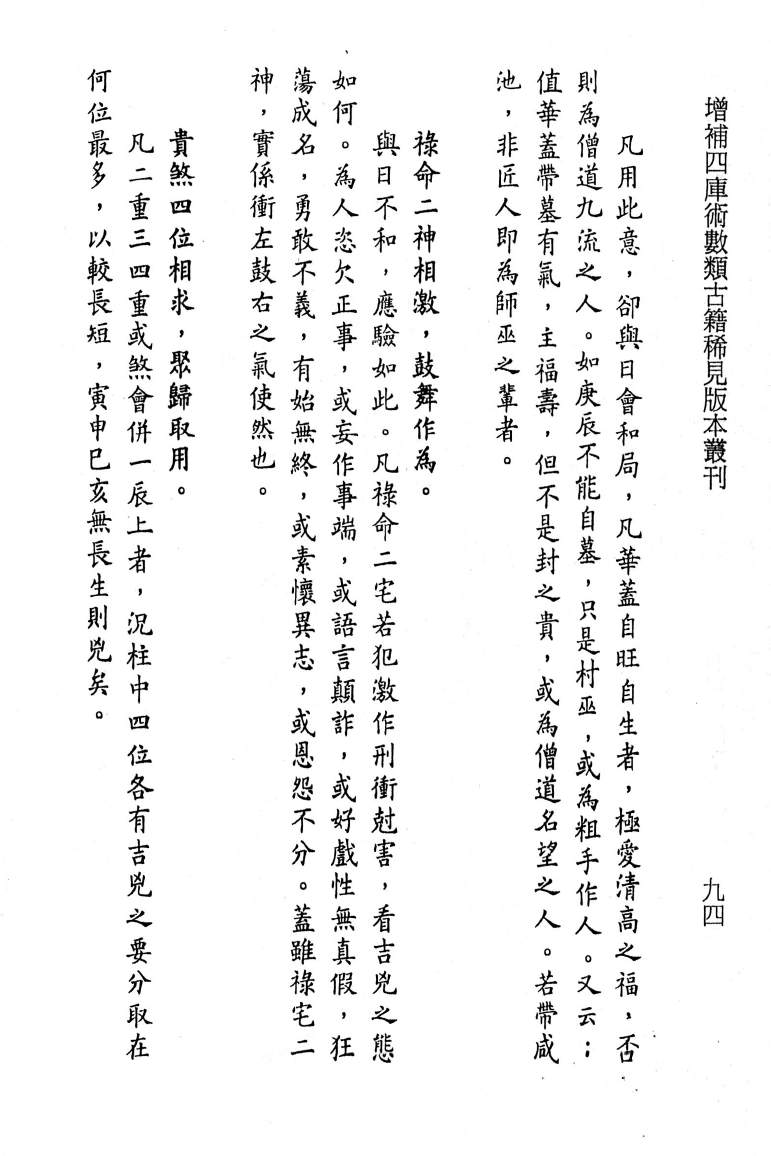 增補四庫術數類古籍稀見版本叢刊
九四
凡用此意，卻與日會和局，凡華蓋自旺自生者，極愛清高之福，否
則為僧道九流之人。如庚辰不能自墓，只是村巫，或為粗手作人。又云；
值華蓋帶墓有氣，主福壽，但不是封之貴，或為僧道名望之人。若帶咸
池，非匠人即為師巫之輩者。
祿命二神相激，鼓舞作為。
與日不和，應驗如此。凡祿命二宅若犯激作刑衝尅害，看吉兇之態
如何。為人恣欠正事，或妄作事端，或語言顛詐，或好戲性無真假，狂
蕩成名，勇敢不義，有始無終，或素懷異志，或恩怨不分。蓋雖祿宅二
神，實係衝左鼓右之氣使然也。
貴煞四位相求，聚歸取用。
凡二重三四重或煞會併一辰上者，況柱中四位各有吉兇之要分取在
何位最多，以較長短，寅申巳亥無長生則兇矣。